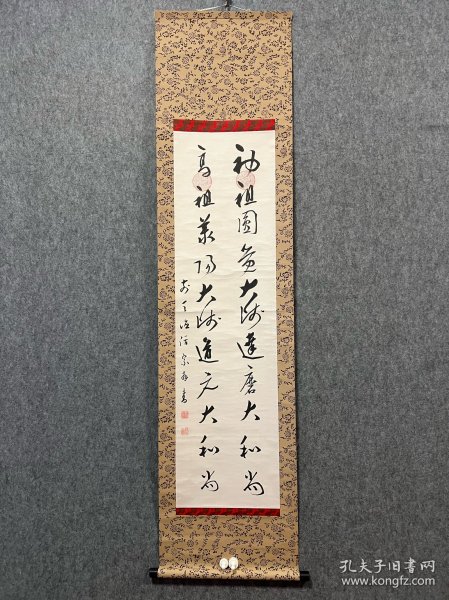 初祖圓覺大師達磨大和尚
高祖承陽大師道元大和尚
孔夫子旧书网
www.kongfz.com